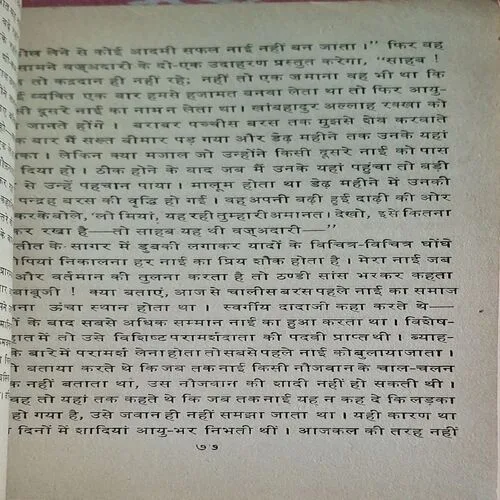 खोल लेने से कोई आदमी सफल नाई नहीं बन जाता।" फिर वह
सामने वज़अदारी के दो-एक उदाहरण प्रस्तुत करेगा, "साहब !
तो कद्रदान ही नहीं रहे; नहीं तो एक जमाना वह भी था कि
व्यक्ति एक बार हमसे हजामत बनवा लेता था तो फिर आयु-
दूसरे नाई का नाम न लेता था। खांबहादुर अल्लाह रक्खा को
जानते होंगे। बराबर पच्चीस बरस तक मुझसे शेव करवाते
क बार मैं सख्त बीमार पड़ गया और डेढ़ महीने तक उनके यहां
का। लेकिन क्या मजाल जो उन्होंने किसी दूसरे नाई को पास
दिया हो। ठीक होने के बाद जब मैं उनके यहां पहुंचा तो बड़ी
से उन्हें पहचान पाया। मालूम होता था डेढ़ महीने में उनकी
पन्द्रह बरस की वृद्धि हो गई। वह अपनी बढ़ी हुई दाढ़ी की ओर
करके बोले, 'लो मियां, यह रही तुम्हारी अमानत। देखो, इसे कितना
कर रखा है—तो साहब यह थी वज़अदारी—"
तीत के सागर में डुबकी लगाकर यादों के विचित्र-विचित्र घोंघे
पियां निकालना हर नाई का प्रिय शौक होता है। मेरा नाई जब
और वर्तमान की तुलना करता है तो ठण्डी सांस भरकर कहता
बाबूजी ! क्या बताएं, आज से चालीस बरस पहले नाई का समाज
ना ऊंचा स्थान होता था। स्वर्गीय दादाजी कहा करते थे—
ों के बाद सबसे अधिक सम्मान नाई का हुआ करता था। विशेष-
हात में तो उसे विशिष्ट परामर्शदाता की पदवी प्राप्त थी। ब्याह-
के बारे में परामर्श लेना होता तो सबसे पहले नाई को बुलाया जाता।
ो बताया करते थे कि जब तक नाई किसी नौजवान के चाल-चलन
क नहीं बताता था, उस नौजवान की शादी नहीं हो सकती थी।
वह तो यहां तक कहते थे कि जब तक नाई यह न कह दे कि लड़का
हो गया है, उसे जवान ही नहीं समझा जाता था। यही कारण था
दिनों में शादियां आयु-भर निभती थीं। आजकल की तरह नहीं
७७